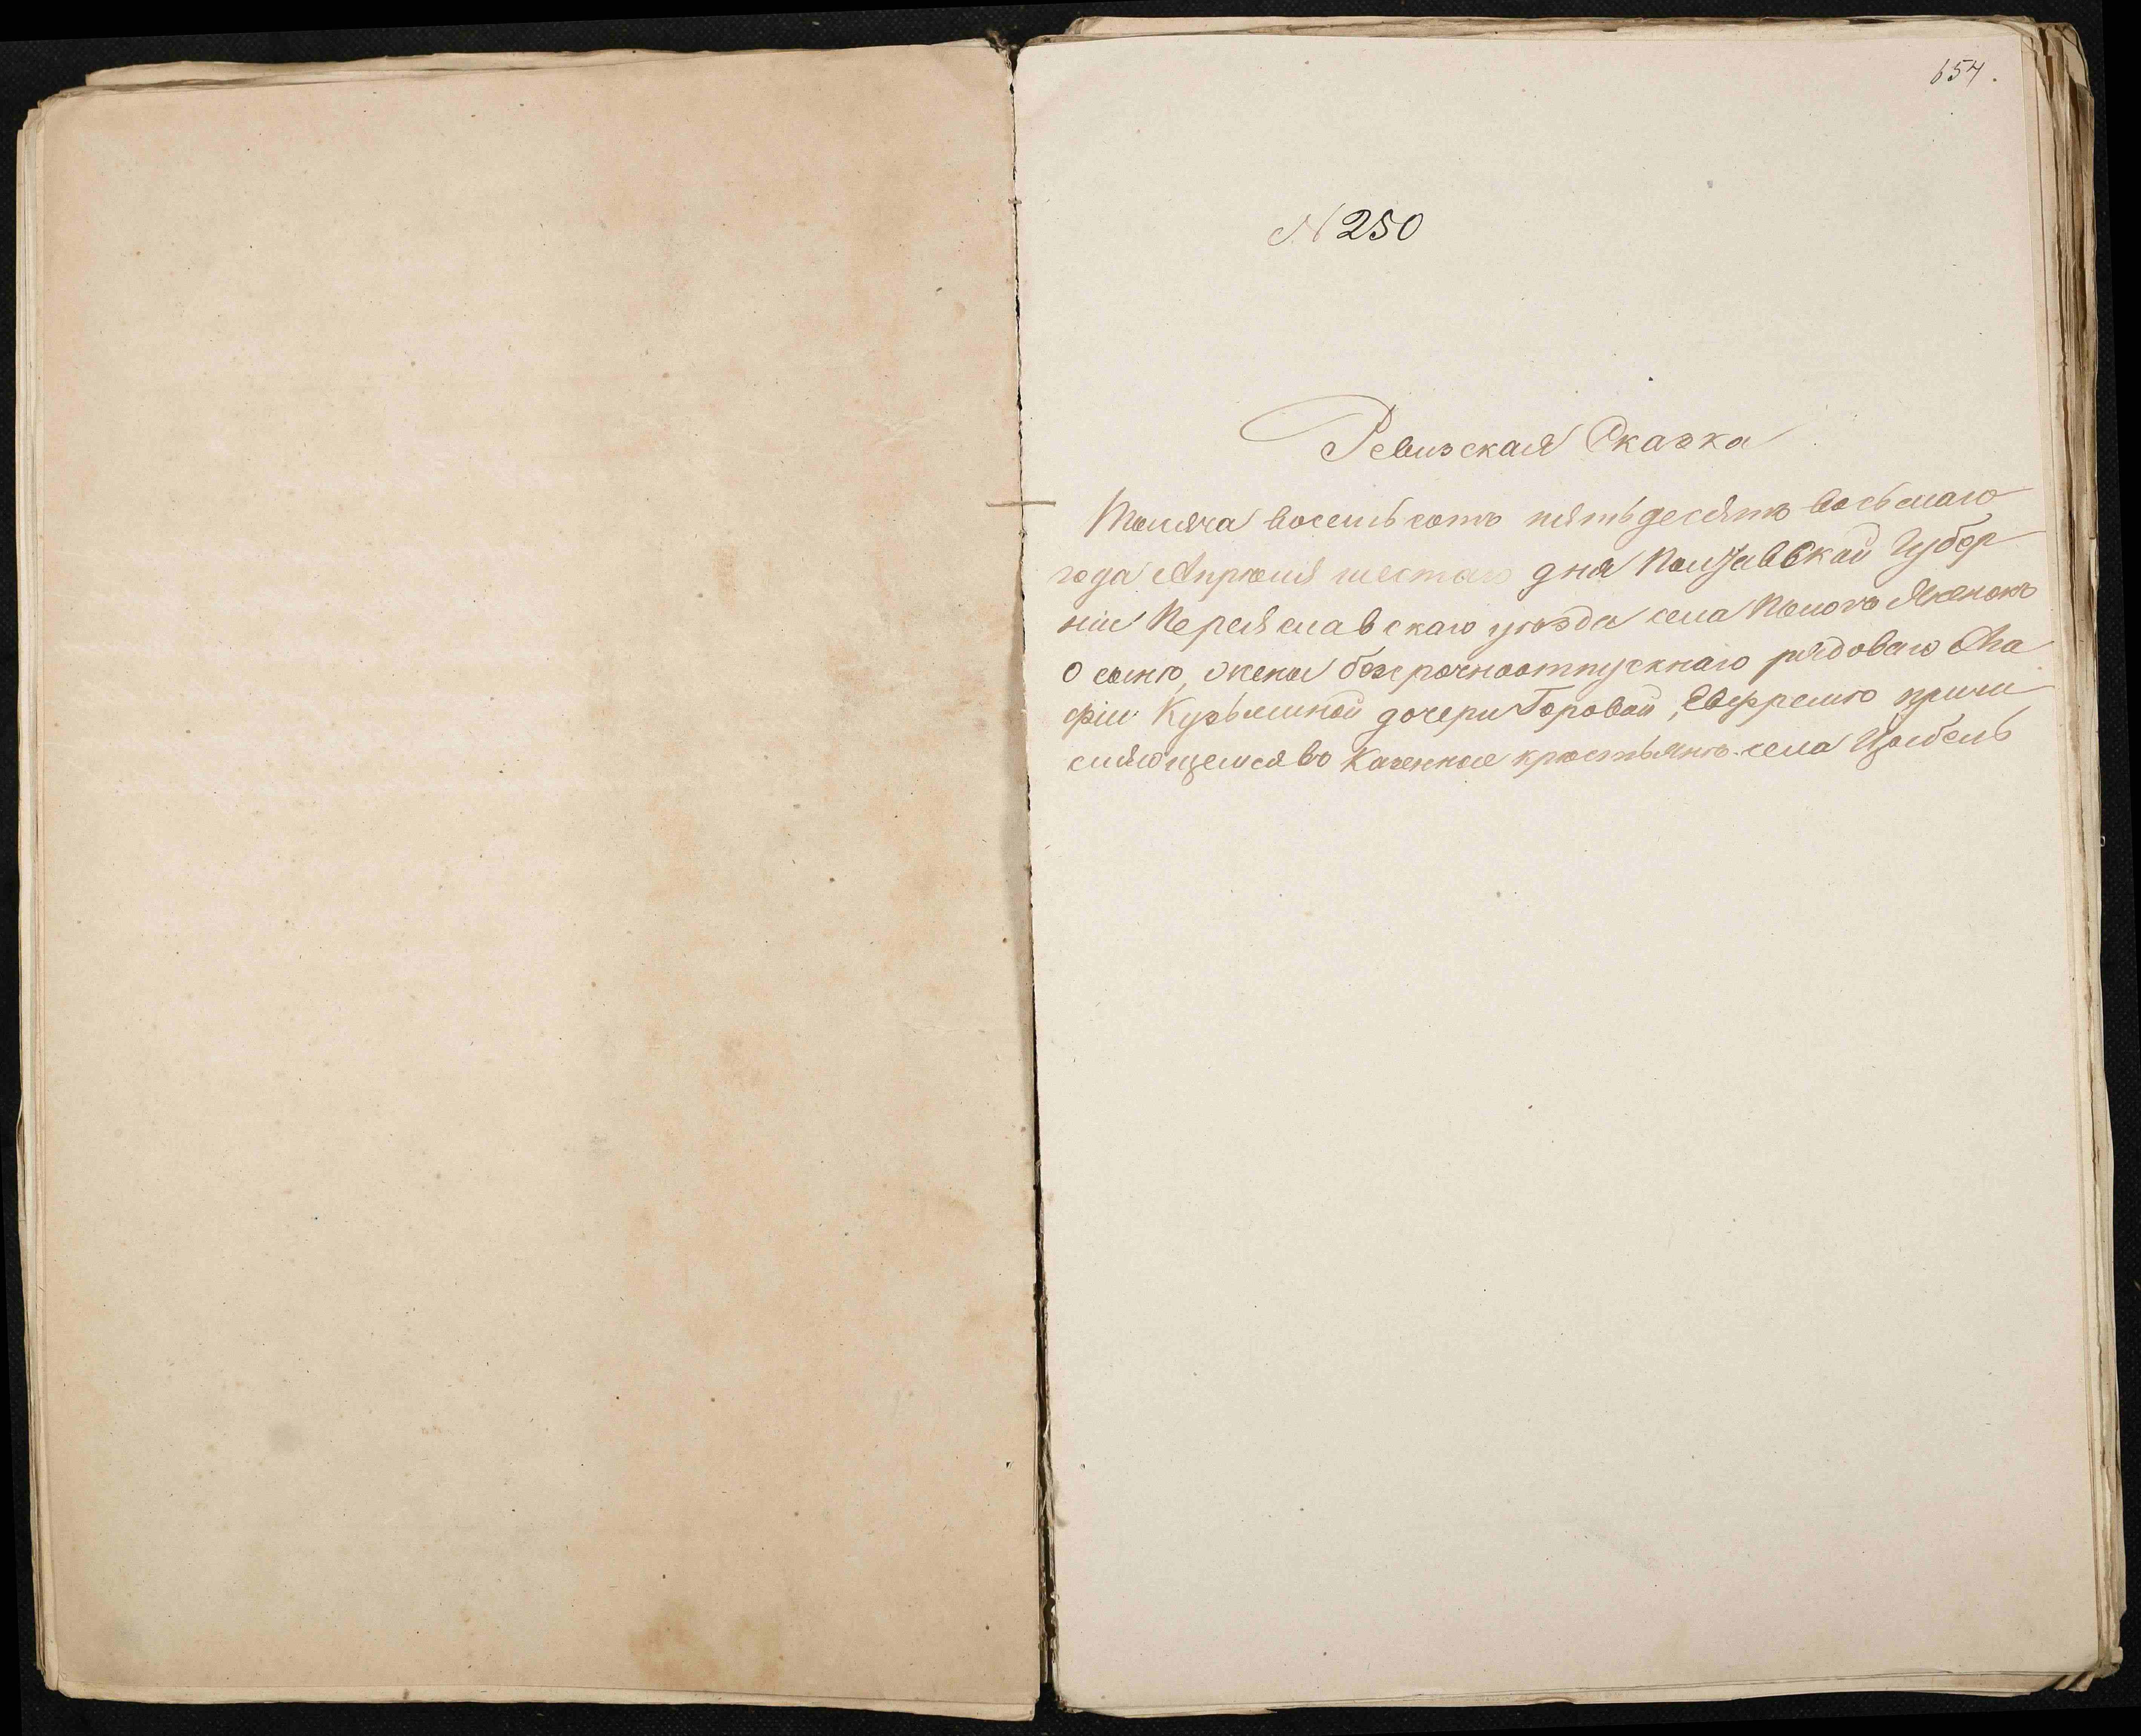 654.
N 250
Ревизская Сказка
Тысяча восемьсотъ пятьдесятъ восьмаго
года Апрѣля шестаго дня Полтавской Губер
ніи Переяславскаго уѣзда села Помоклъ
О сынѣ, жены безсрочноотпускнаго рядоваго Ага
фіи Кузьминой дочери Горовой, Евфремѣ причи
сляющемся въ Казенные крестьяне села Цыбель